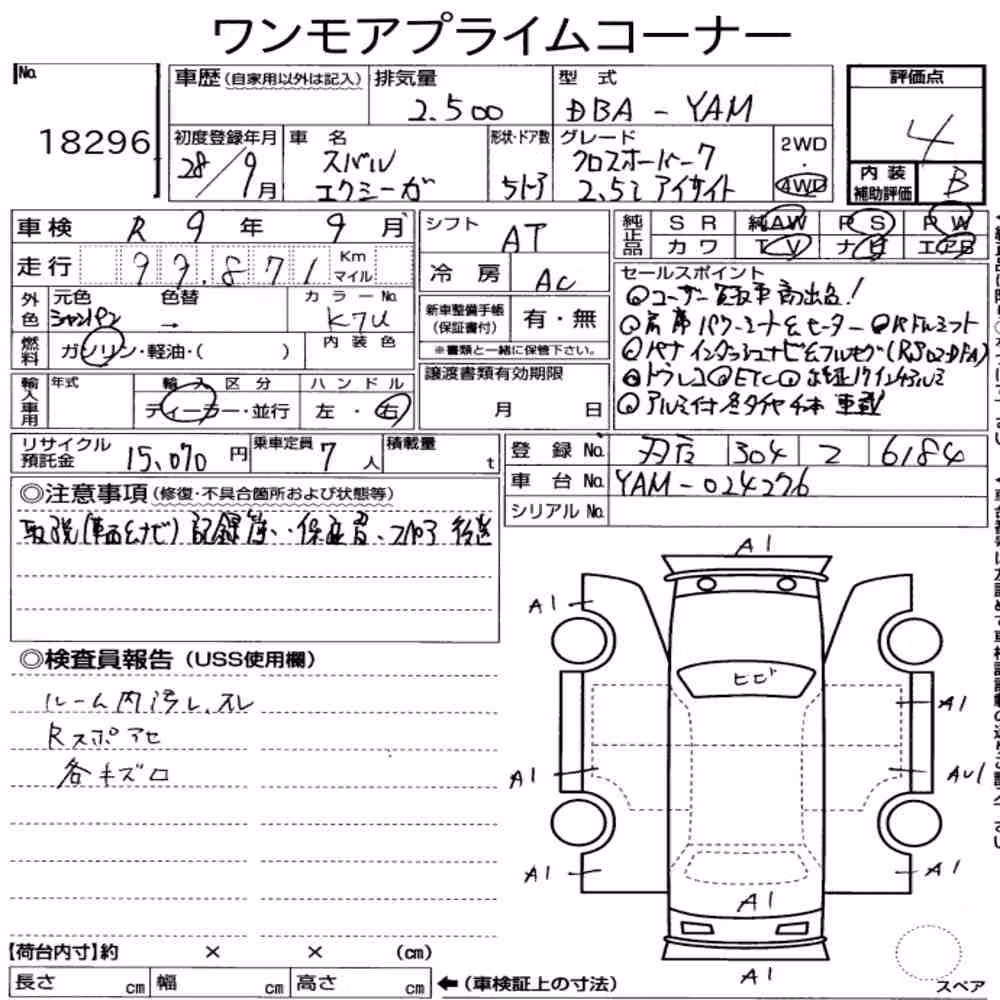 ワンモアプライムコーナー
No.
18296
車歴 (自家用以外は記入)
排気量
2.500
型 式
DBA - YAM
評価点
4
内装
補助評価
B
初度登録年月
28/9月
車 名
スバル
エクシーガ
形状・ドア数
5ドア
グレード
クロスオーバー7
2.5i アイサイト
2WD
・
4WD
車検 R 9 年 9 月
走行 99.871 Km
マイル
外色
元色
シャンパン
色替
→
カラーNo.
K7U
燃料
ガソリン・軽油・( )
内 装 色
輸入車用
年式
輸 入 区 分
ディーラー・並行
ハ ン ド ル
左 ・ 右
シフト
AT
冷 房
AC
新車整備手帳
(保証書付)
有・無
※書類と一緒に保管下さい。
譲渡書類有効期限
月 日
純正品
S R
純AW
P S
P W
カ ワ
T V
ナ ビ
エアB
セールスポイント
◎ユーザー買取車 初出品!
◎前席パワーシート&ヒーター ◎パドルシフト
◎パナ インダッシュナビ&フルセグ(RS02-DFA)
◎ドラレコ◎ETC◎ 純正17インチアルミ
◎アルミ付冬タイヤ4本 車載
リサイクル
預託金
15,070 円
乗車定員
7 人
積載量
t
登 録 No.
304
6184
車 台 No.
YAM-024276
シリアル No.
◎注意事項 (修復・不具合箇所および状態等)
取説(車両&ナビ) 記録簿、保証書、スペア 後送
◎検査員報告 (USS使用欄)
ルーム内汚レ、スレ
Rスポアセ
各キズ□
A1
A1
ヒビ
A1
A1
AU1
A1
A1
A1
A1
スペア
【荷台内寸】約 × × (cm)
長さ cm
幅 cm
高さ cm
←(車検証上の寸法)